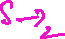 S→2